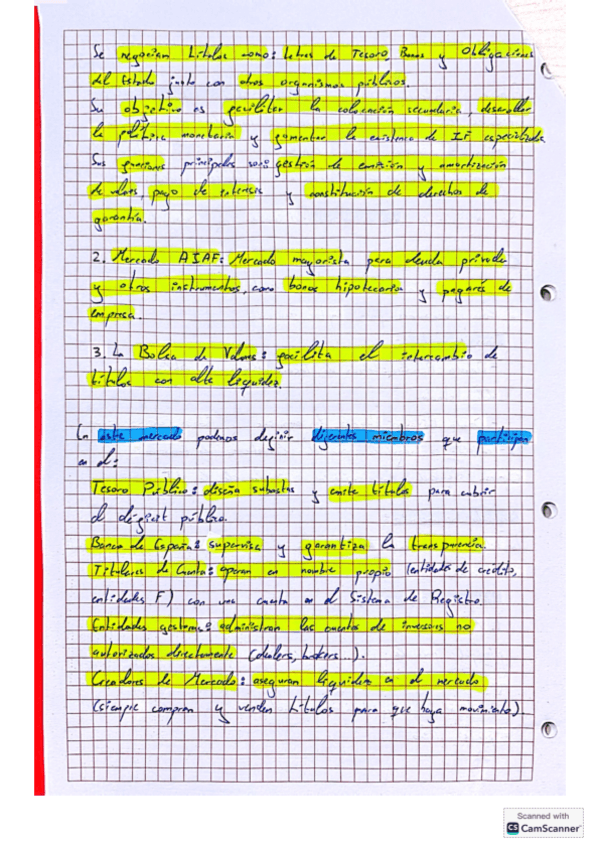 Se negocian títulos como: letras de Tesoro, Bonos y Obligaciones
del Estado junto con otros organismos públicos.
Su objetivo es facilitar la colocación secundaria, desarrollar
la política monetaria y fomentar la existencia de IF especializada
Sus funciones principales son: gestión de emisión y amortización
de valores, pago de intereses y constitución de derechos de
garantía.
2. Mercado AIAF: Mercado mayorista para deuda privada
y otros instrumentos, como bonos hipotecarios y pagarés de
empresa.
3. La Bolsa de Valores: facilita el intercambio de
títulos con alta liquidez.
En este mercado podemos definir diferentes miembros que participan
en él:
Tesoro Público: diseña subastas y emite títulos para cubrir
el déficit público.
Banco de España: supervisa y garantiza la transparencia.
Titulares de Cuenta: operan en nombre propio (entidades de crédito,
entidades F) con una cuenta en el Sistema de Registro.
Entidades gestoras: administran las cuentas de inversores no
autorizados directamente (dealers, brokers...).
Creadores de Mercado: aseguran liquidez en el mercado
(siempre compran y venden títulos para que haya movimiento).
Scanned with
CS CamScanner